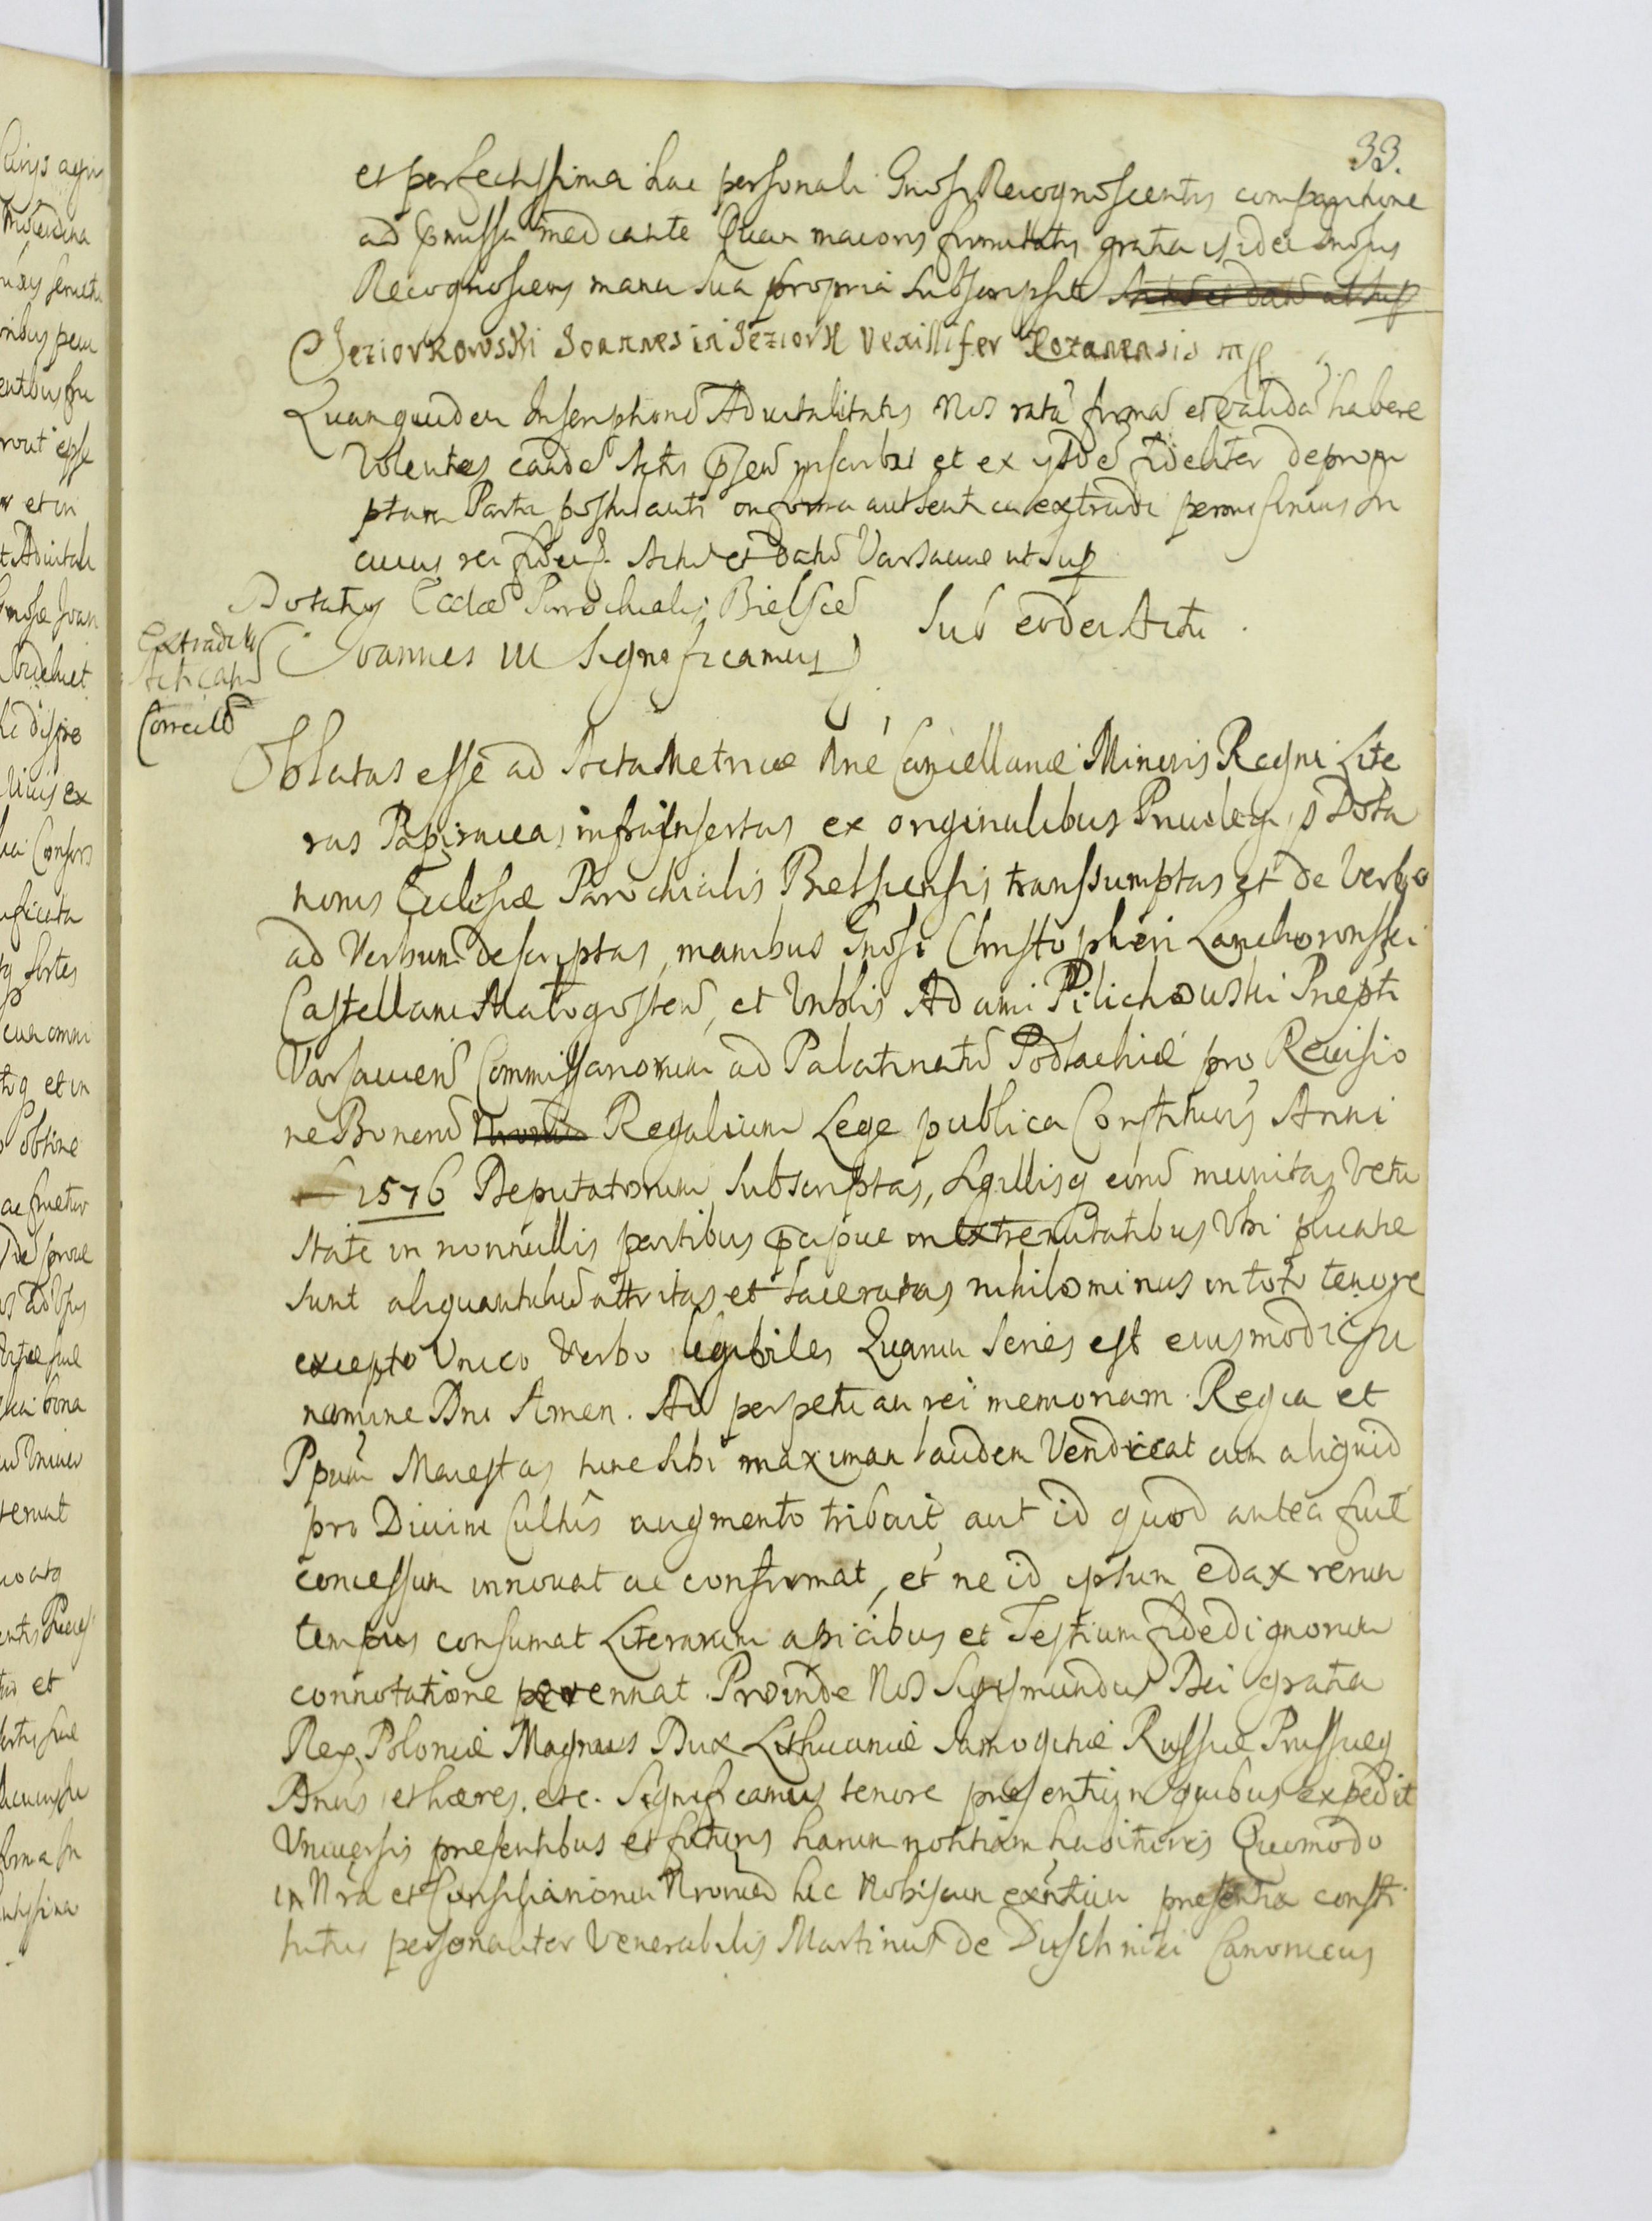 33.
et perfectissima hac personali Gnosi Recognoscentis comparitione
ad pmissa mediante Quam maioris firmitatis gratia isidem Gnosus
Recognoscens manu sua propria subscripsit Actũ et datũ ut sup
Jeziorkowski Joannes in Jeziorki Vexillifer Rozanensis mp
Quamquidem Inscriptionẽ Aduitalitatis Nos ratã firmã et validã habere
Volentes eandẽ Actis pseñ inscribi et ex ijsdẽ fideliter deprom
ptam Parti postulanti in forma authentica extradi permisimus In
cuius rei fidem Actũ et Datũ Varsauiae ut sup
Dotatio Ecclae Parrochialis Bielsceñ
Joannes III Significamus
Sub eodem Actu.
Extradit
Acticatũ
Correctũ
Oblatas esse ad Acta Metricae Nrae Cancellariae Minoris Regni Lite
ras Papiraceas infrainsertas ex originalibus Priuileg. Dota
tionis Ecclesiae Parochialis Bielscensis transsumptas et de Verbo
ad Verbum descriptas, manibus Gnosi Christopheri Lanckoronski
Castellani Małogosteñ, et Vnblis Adami Pilichouski Praepti
Varsauieñ Commissariorum ad Palatinatũ Podlachiae pro Reuisio
ne Bonorũ Nrorũ Regalium Lege publica Constitution̄is Anni
1576 Deputatorum subscriptas, Sigillisq eorũ munitas Vetu
state in nonnullis partibus pcipue in extremitatibus Vbi plicatae
sunt aliquantulũ attritas et laceratas nihilominus in toto tenore
excepto Vnico Verbo legibiles Quarum Series est eiusmodi In
nomine Dni Amen. Ad perpetuam rei memoriam. Regia et
Ppum Maiestas tunc sibi maximam laudem Vendicat cum aliquid
pro Diuini Cultûs augmento tribuit, aut id quod antea fuit
concessum innouat ac confirmat, et ne id ipsum edax rerum
tempus consumat Literarum apicibus et Testium fidedignorum
connotatione perennat. Proinde Nos Sigismundus Dei gratia
Rex Poloniae Magnus Dux Lithuaniae Samogitiae Russiae Prussiaeq
Dnus et haeres. etc. Significamus tenore presentium quibus expedit
Vniuersis presentibus et futuris harum notitiam habituris Quomodo
in Nra et Consiliariorum Nrorum hic Nobiscum exntium presentia consti
tutus personaliter Venerabilis Martinus de Duschniki Canonicus